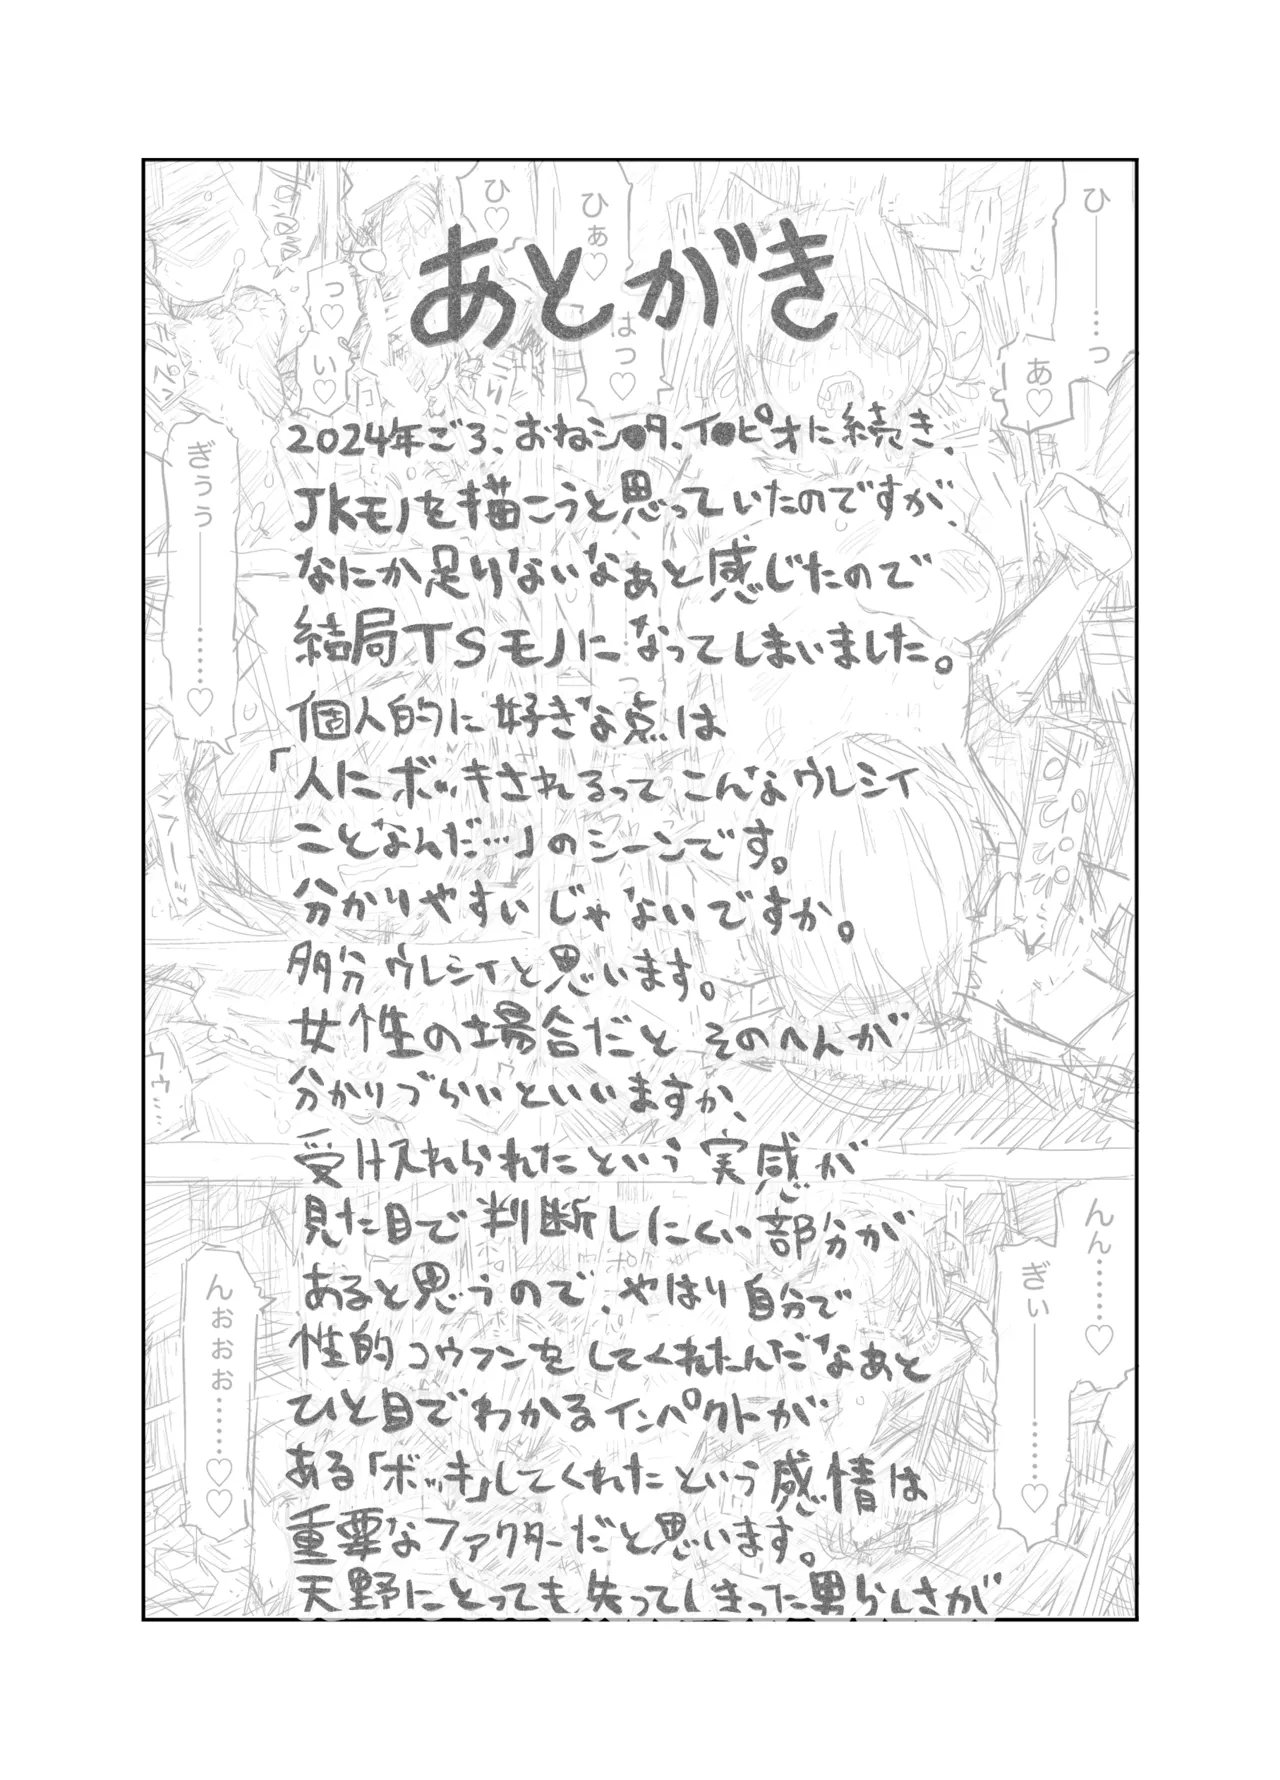 あとがき
2024年ごろ、おねシ●タ、イ●ピオに続き、
JKモノを描こうと思っていたのですが、
なにか足りないなぁと感じたので
結局TSモノになってしまいました。
個人的に好きな点は
「人にボッキされるってこんなウレシイ
ことなんだ…」のシーンです。
分かりやすいじゃないですか。
多分ウレシイと思います。
女性の場合だとそのへんが
分かりづらいといいますか、
受け入れられたという実感が
見た目で判断しにくい部分が
あると思うので、やはり自分で
性的コウフンをしてくれたんだなあと
ひと目でわかるインパクトが
ある「ボッキ」してくれたという感情は
重要なファクターだと思います。
天野にとっても失ってしまった男らしさが
ひ――――…っ
あ♡
ひぁ♡
はっ♡
ひ♡
っ♡
い♡
ぎぅぅ――――………♡
んん………♡
ぎぃ――――………♡
んぉぉぉ………♡♡